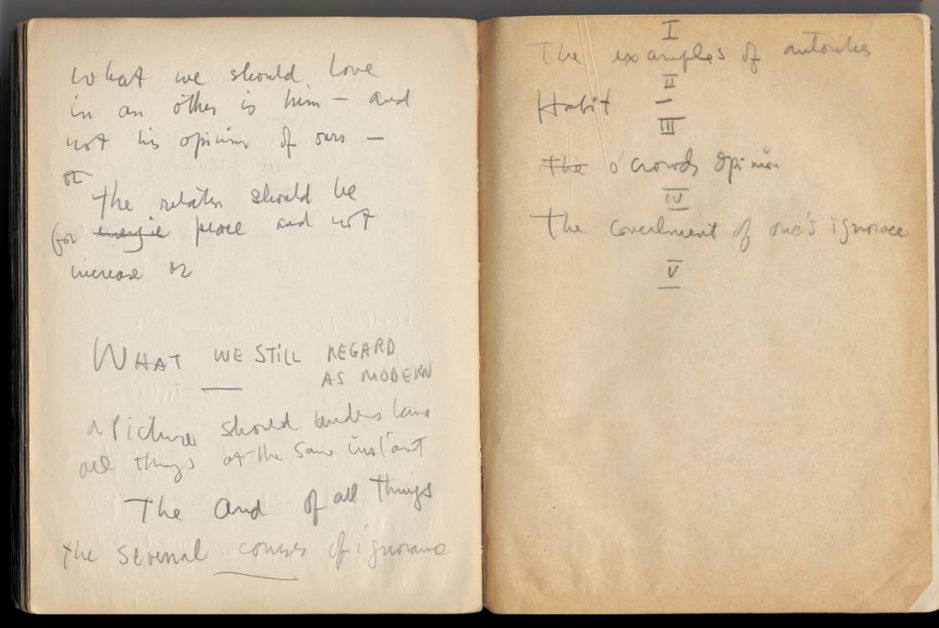 What we should love
in an other is him – and
not his opinion of ours –
or
The relation should be
for peace and not
increase or
WHAT WE STILL REGARD
AS MODERN
A Picture should
all things at the same instant
The and of all Things
the several courses of ignorance
I
The examples of
II
Habit
III
The o' crowds opinion
IV
The of one's ignorace
V